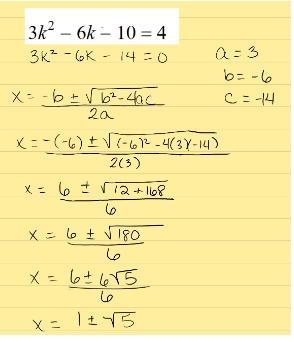 3k² − 6k − 10 = 4
3k² - 6k - 14 = 0
a = 3
b = -6
c = -14
x = -b ± √b²-4ac / 2a
x = -(-6) ± √(-6)² - 4(3)(-14) / 2(3)
x = 6 ± √12 + 168 / 6
x = 6 ± √180 / 6
x = 6 ± 6√5 / 6
x = 1 ± √5